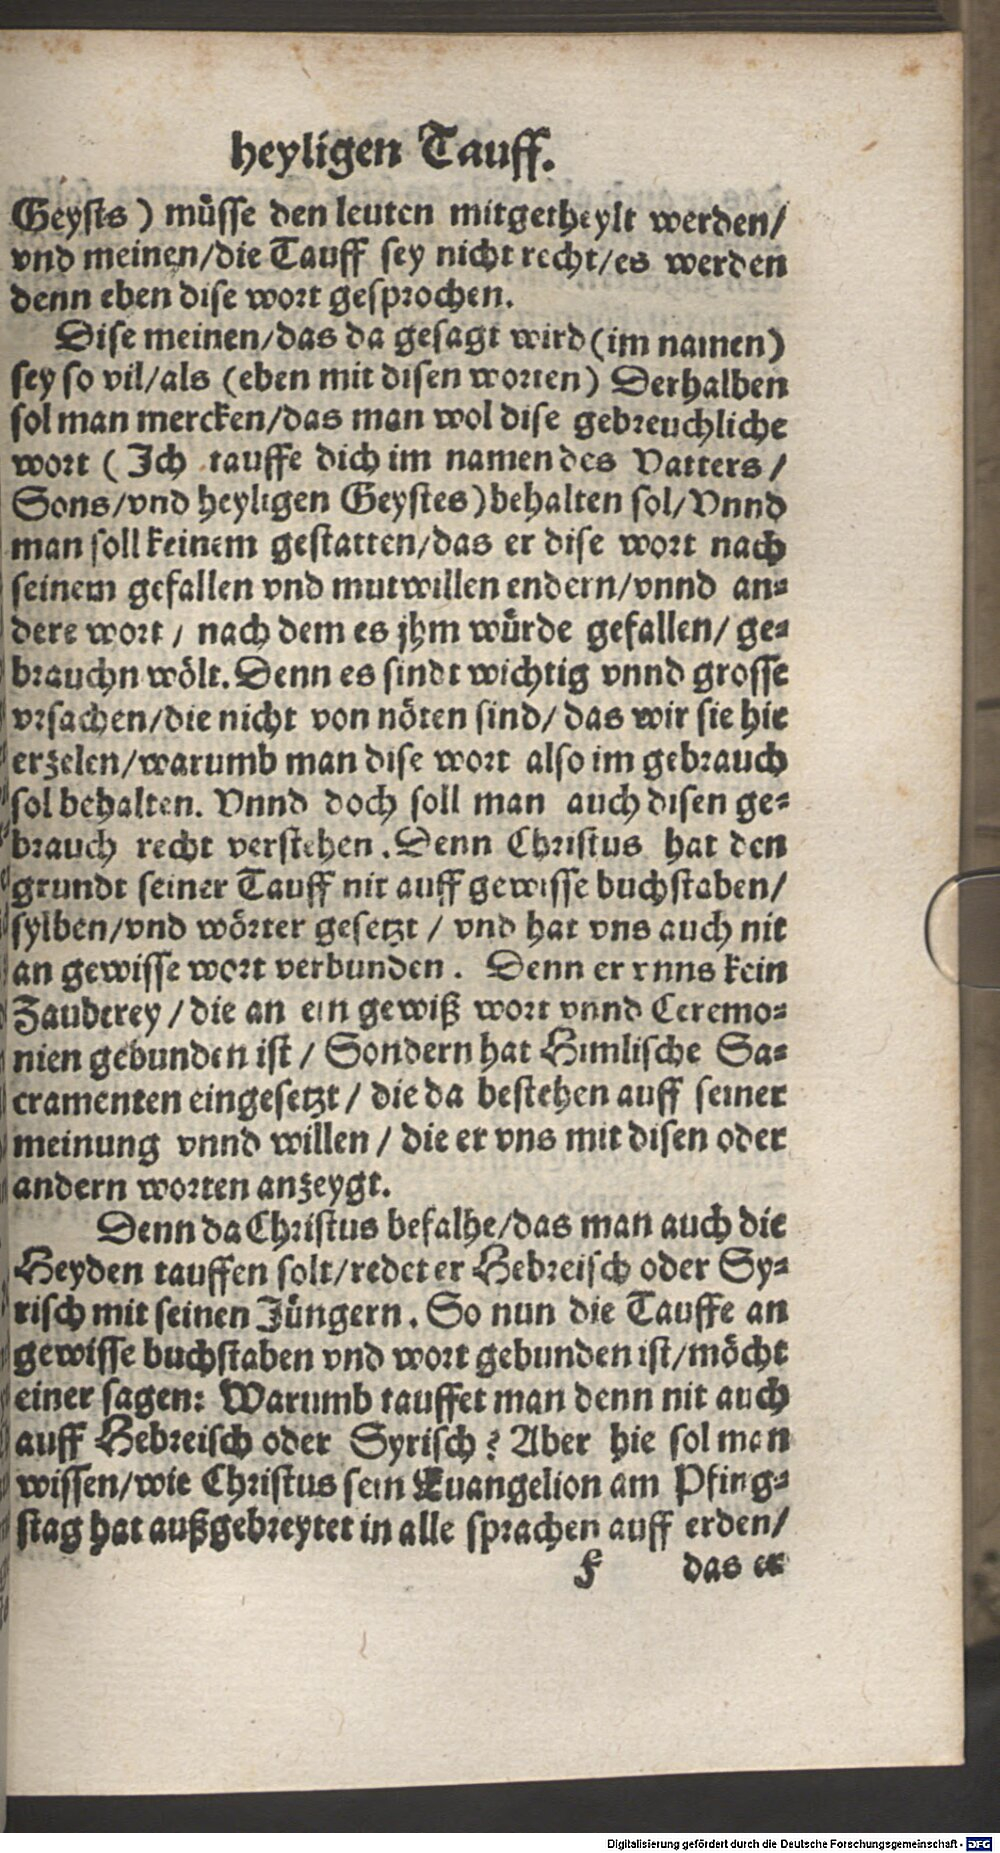 heyligen Tauff.
Geysts) müsse den leuten mitgetheylt werden/
vnd meinen/die Tauff sey nicht recht/es werden
denn eben dise wort gesprochen.
Dise meinen/das da gesagt wird (im namen)
sey so vil/als (eben mit disen worten) Derhalben
sol man mercken/das man wol dise gebreuchliche
wort (Ich tauffe dich im namen des Vatters/
Sons/vnd heyligen Geystes) behalten sol/Vnnd
man soll keinem gestatten/das er dise wort nach
seinem gefallen vnd mutwillen endern/vnnd an-
dere wort/ nach dem es jhm würde gefallen/ ge-
brauchn wölt. Denn es sindt wichtig vnnd grosse
vrsachen/die nicht von nöten sind/ das wir sie hie
erzelen/warumb man dise wort also im gebrauch
sol behalten. Vnnd doch soll man auch disen ge-
brauch recht verstehen. Denn Christus hat den
grundt seiner Tauff nit auff gewisse buchstaben/
sylben/vnd wörter gesetzt / vnd hat vns auch nit
an gewisse wort verbunden. Denn er vnns kein
Zauberey / die an ein gewiß wort vnnd Ceremo-
nien gebunden ist / Sondern hat Himlische Sa-
cramenten eingesetzt / die da bestehen auff seiner
meinung vnnd willen / die er vns mit disen oder
andern worten anzeygt.
Denn da Christus befalhe/das man auch die
Heyden tauffen solt/redet er Hebreisch oder Sy-
risch mit seinen Jüngern. So nun die Tauffe an
gewisse buchstaben vnd wort gebunden ist/möcht
einer sagen: Warumb tauffet man denn nit auch
auff Hebreisch oder Syrisch? Aber hie sol man
wissen/wie Christus sein Euangelion am Pfing-
stag hat außgebreytet in alle sprachen auff erden/
f das er
Digitalisierung gefördert durch die Deutsche Forschungsgemeinschaft - DFG